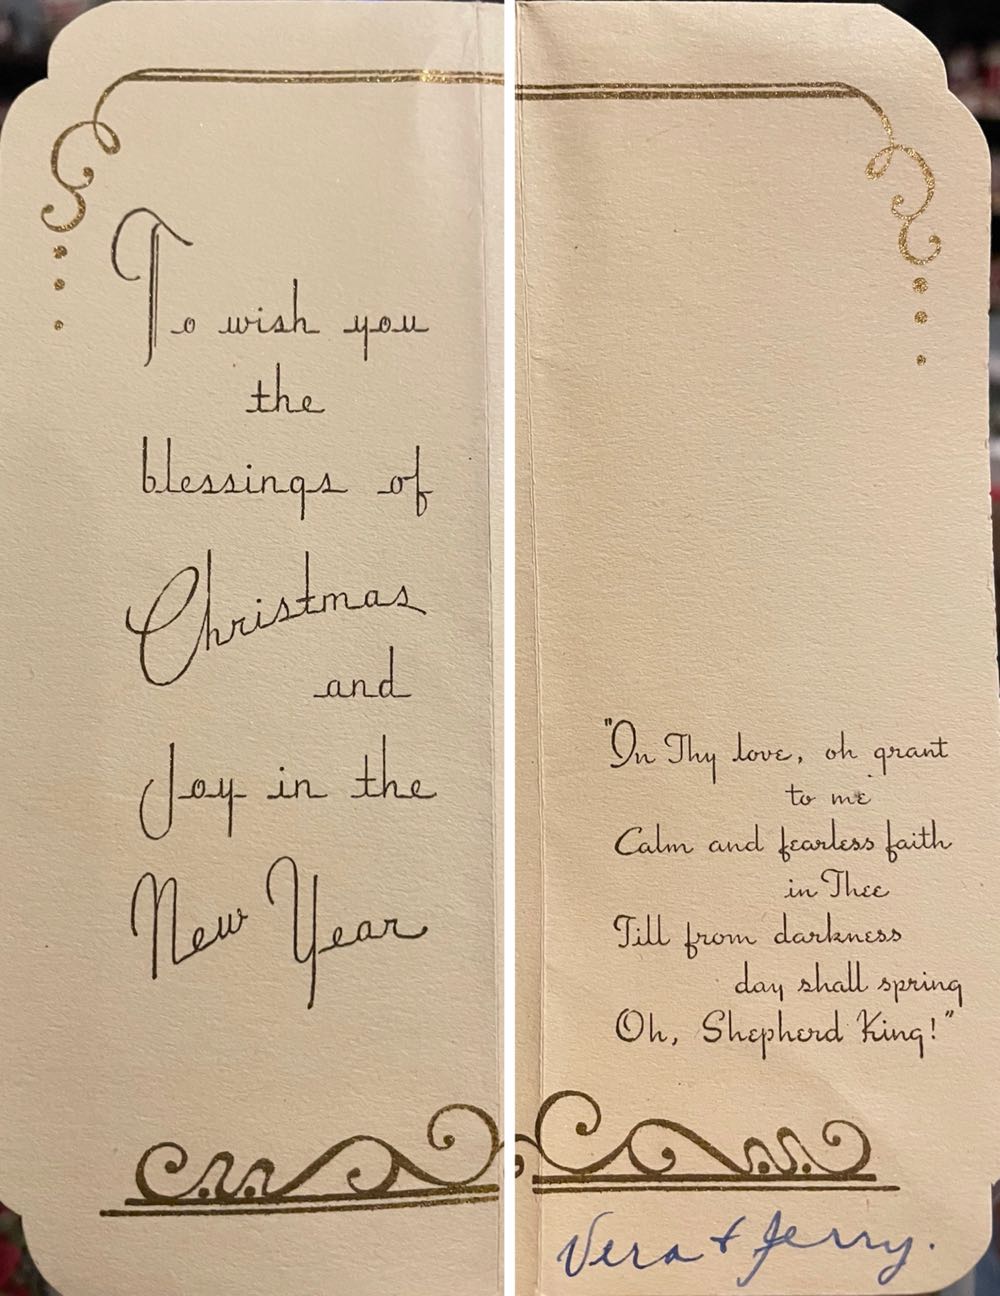 To wish you
the
blessings of
Christmas
and
Joy in the
New Year
"In Thy love, oh grant
to me
Calm and fearless faith
in Thee
Till from darkness
day shall spring
Oh, Shepherd King!"
Vera + Jerry.